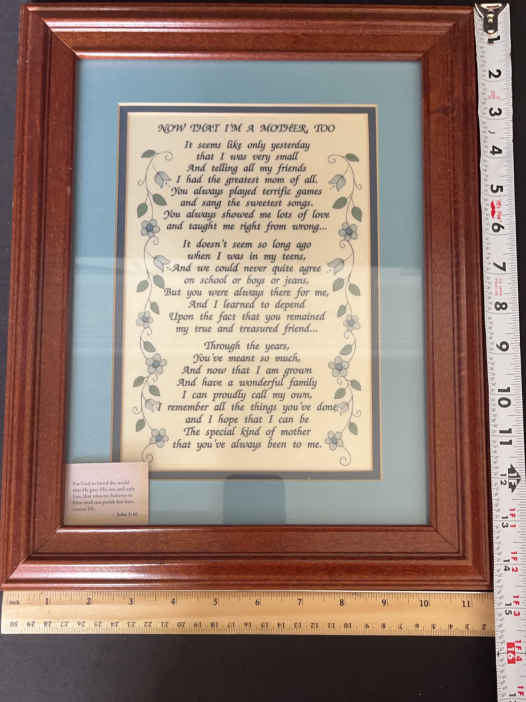 NOW THAT I'M A MOTHER, TOO
It seems like only yesterday
that I was very small
And telling all my friends
I had the greatest mom of all.
You always played terrific games
and sang the sweetest songs.
You always showed me lots of love
and taught me right from wrong...
It doesn't seem so long ago
when I was in my teens,
And we could never quite agree
on school or boys or jeans,
But you were always there for me,
And I learned to depend
Upon the fact that you remained
my true and treasured friend...
Through the years,
You've meant so much,
And now that I am grown
And have a wonderful family
I can proudly call my own,
I remember all the things you've done
and I hope that I can be
The special kind of mother
that you've always been to me.
For God so loved the world
that He gave His one and only
Son, that whoever believes in
Him shall not perish but have
eternal life.
John 3:16
1 2 3 4 5 6 7 8 9 10 11
30 29 28 27 26 25 24 23 22 21 20 19 18 17 16 15 14 13 12 11 10 9 8 7 6 5 4 3 2
1
2
3
4
5
6
7
8
9
10
11
12
13
1F 1
14
1F 2
15
1F 3
16
1F 4